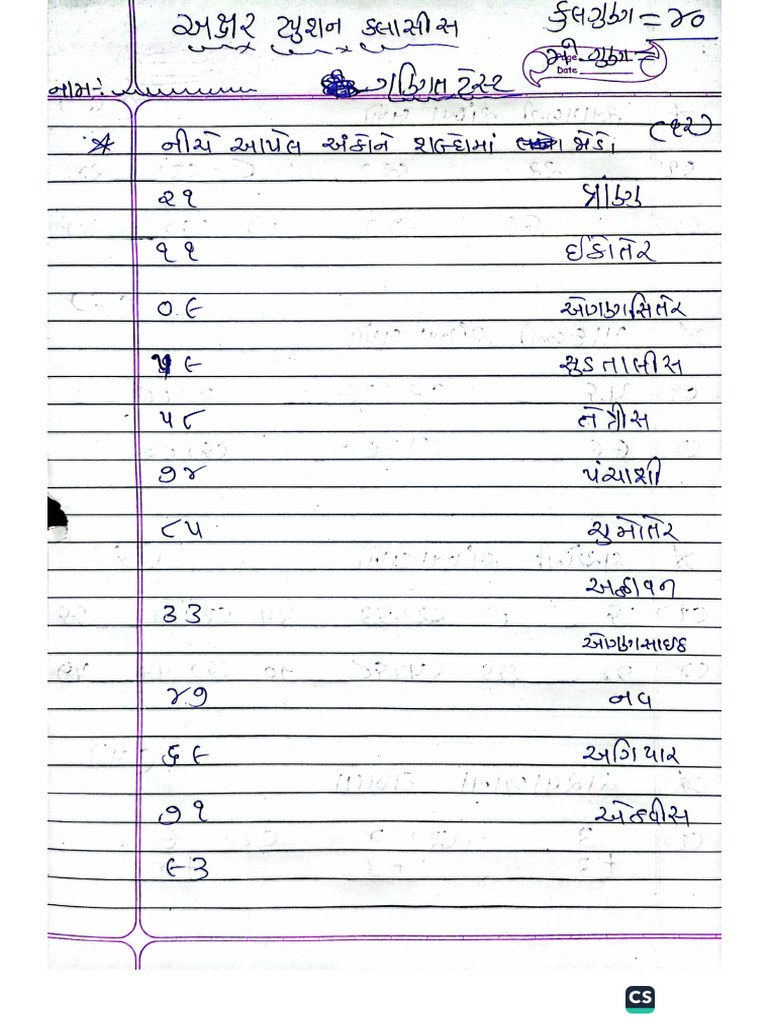 અક્ષર ટ્યુશન ક્લાસીસ
કુલગુણ = ૪૦
મે. ગુણ =
Page
Date
નામ :-
ગણિત ટેસ્ટ
* નીચે આપેલ અંકોને શબ્દોમાં જોડો (૧૨)
૨૧ ત્રાંણુ
૧૧ ઈકોતેર
૦૯ ઓગણસિતેર
૫૯ સુડતાલીસ
૫૮ તેત્રીસ
૭૪ પંચાશી
૮૫ ચુમોતેર
અઠ્ઠાવન
૩૩
ઓગણસાઇઠ
૪૭ નવ
૬૯ અગિયાર
૭૧ એકવીસ
૯૩
CS